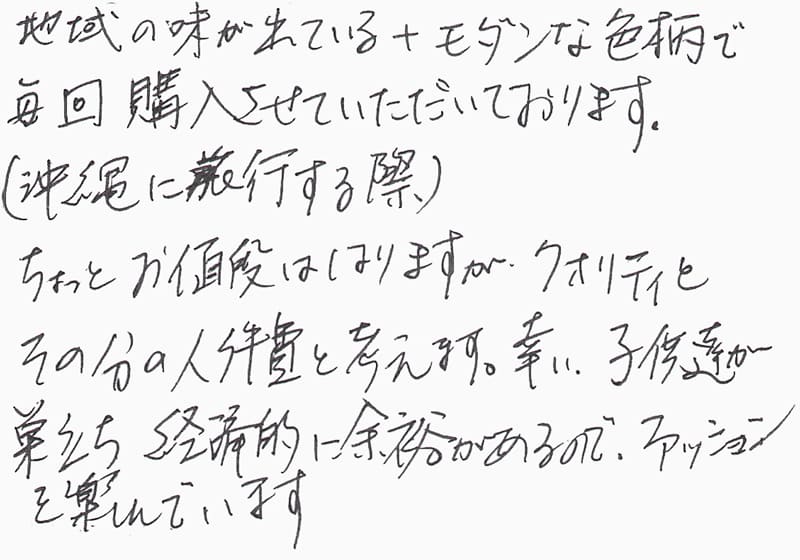 地域の味が出ている+モダンな色柄で
毎回購入させていただいております。
(沖縄に旅行する際)
ちょっとお値段ははりますが、クオリティと
その分の人件費と考えます。幸い、子供達が
巣立ち経済的に余裕があるので、ファッション
を楽しんでいます